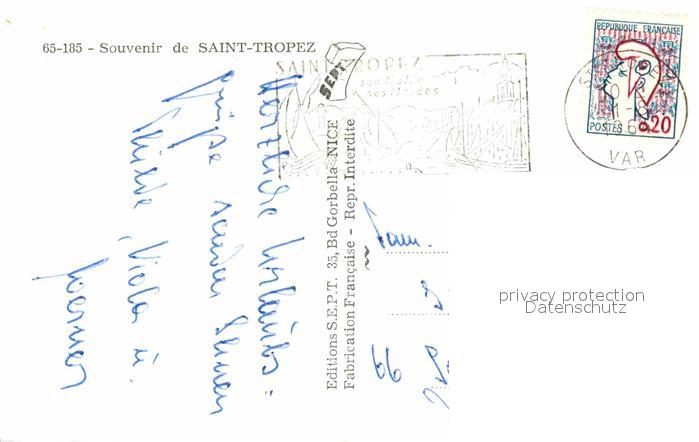 65-185 - Souvenir de SAINT-TROPEZ
SAINT-TROPEZ
son Golfe
ses Musées
SEPT
REPUBLIQUE FRANÇAISE
POSTES 0,20
VAR
Herzliche Urlaubs=
grüße senden Ihnen
Hilde, Viola u.
Editions S.E.P.T. 35, Bd Gorbella NICE
Fabrication Française - Repr. Interdite
Fam.
66
privacy protection
Datenschutz